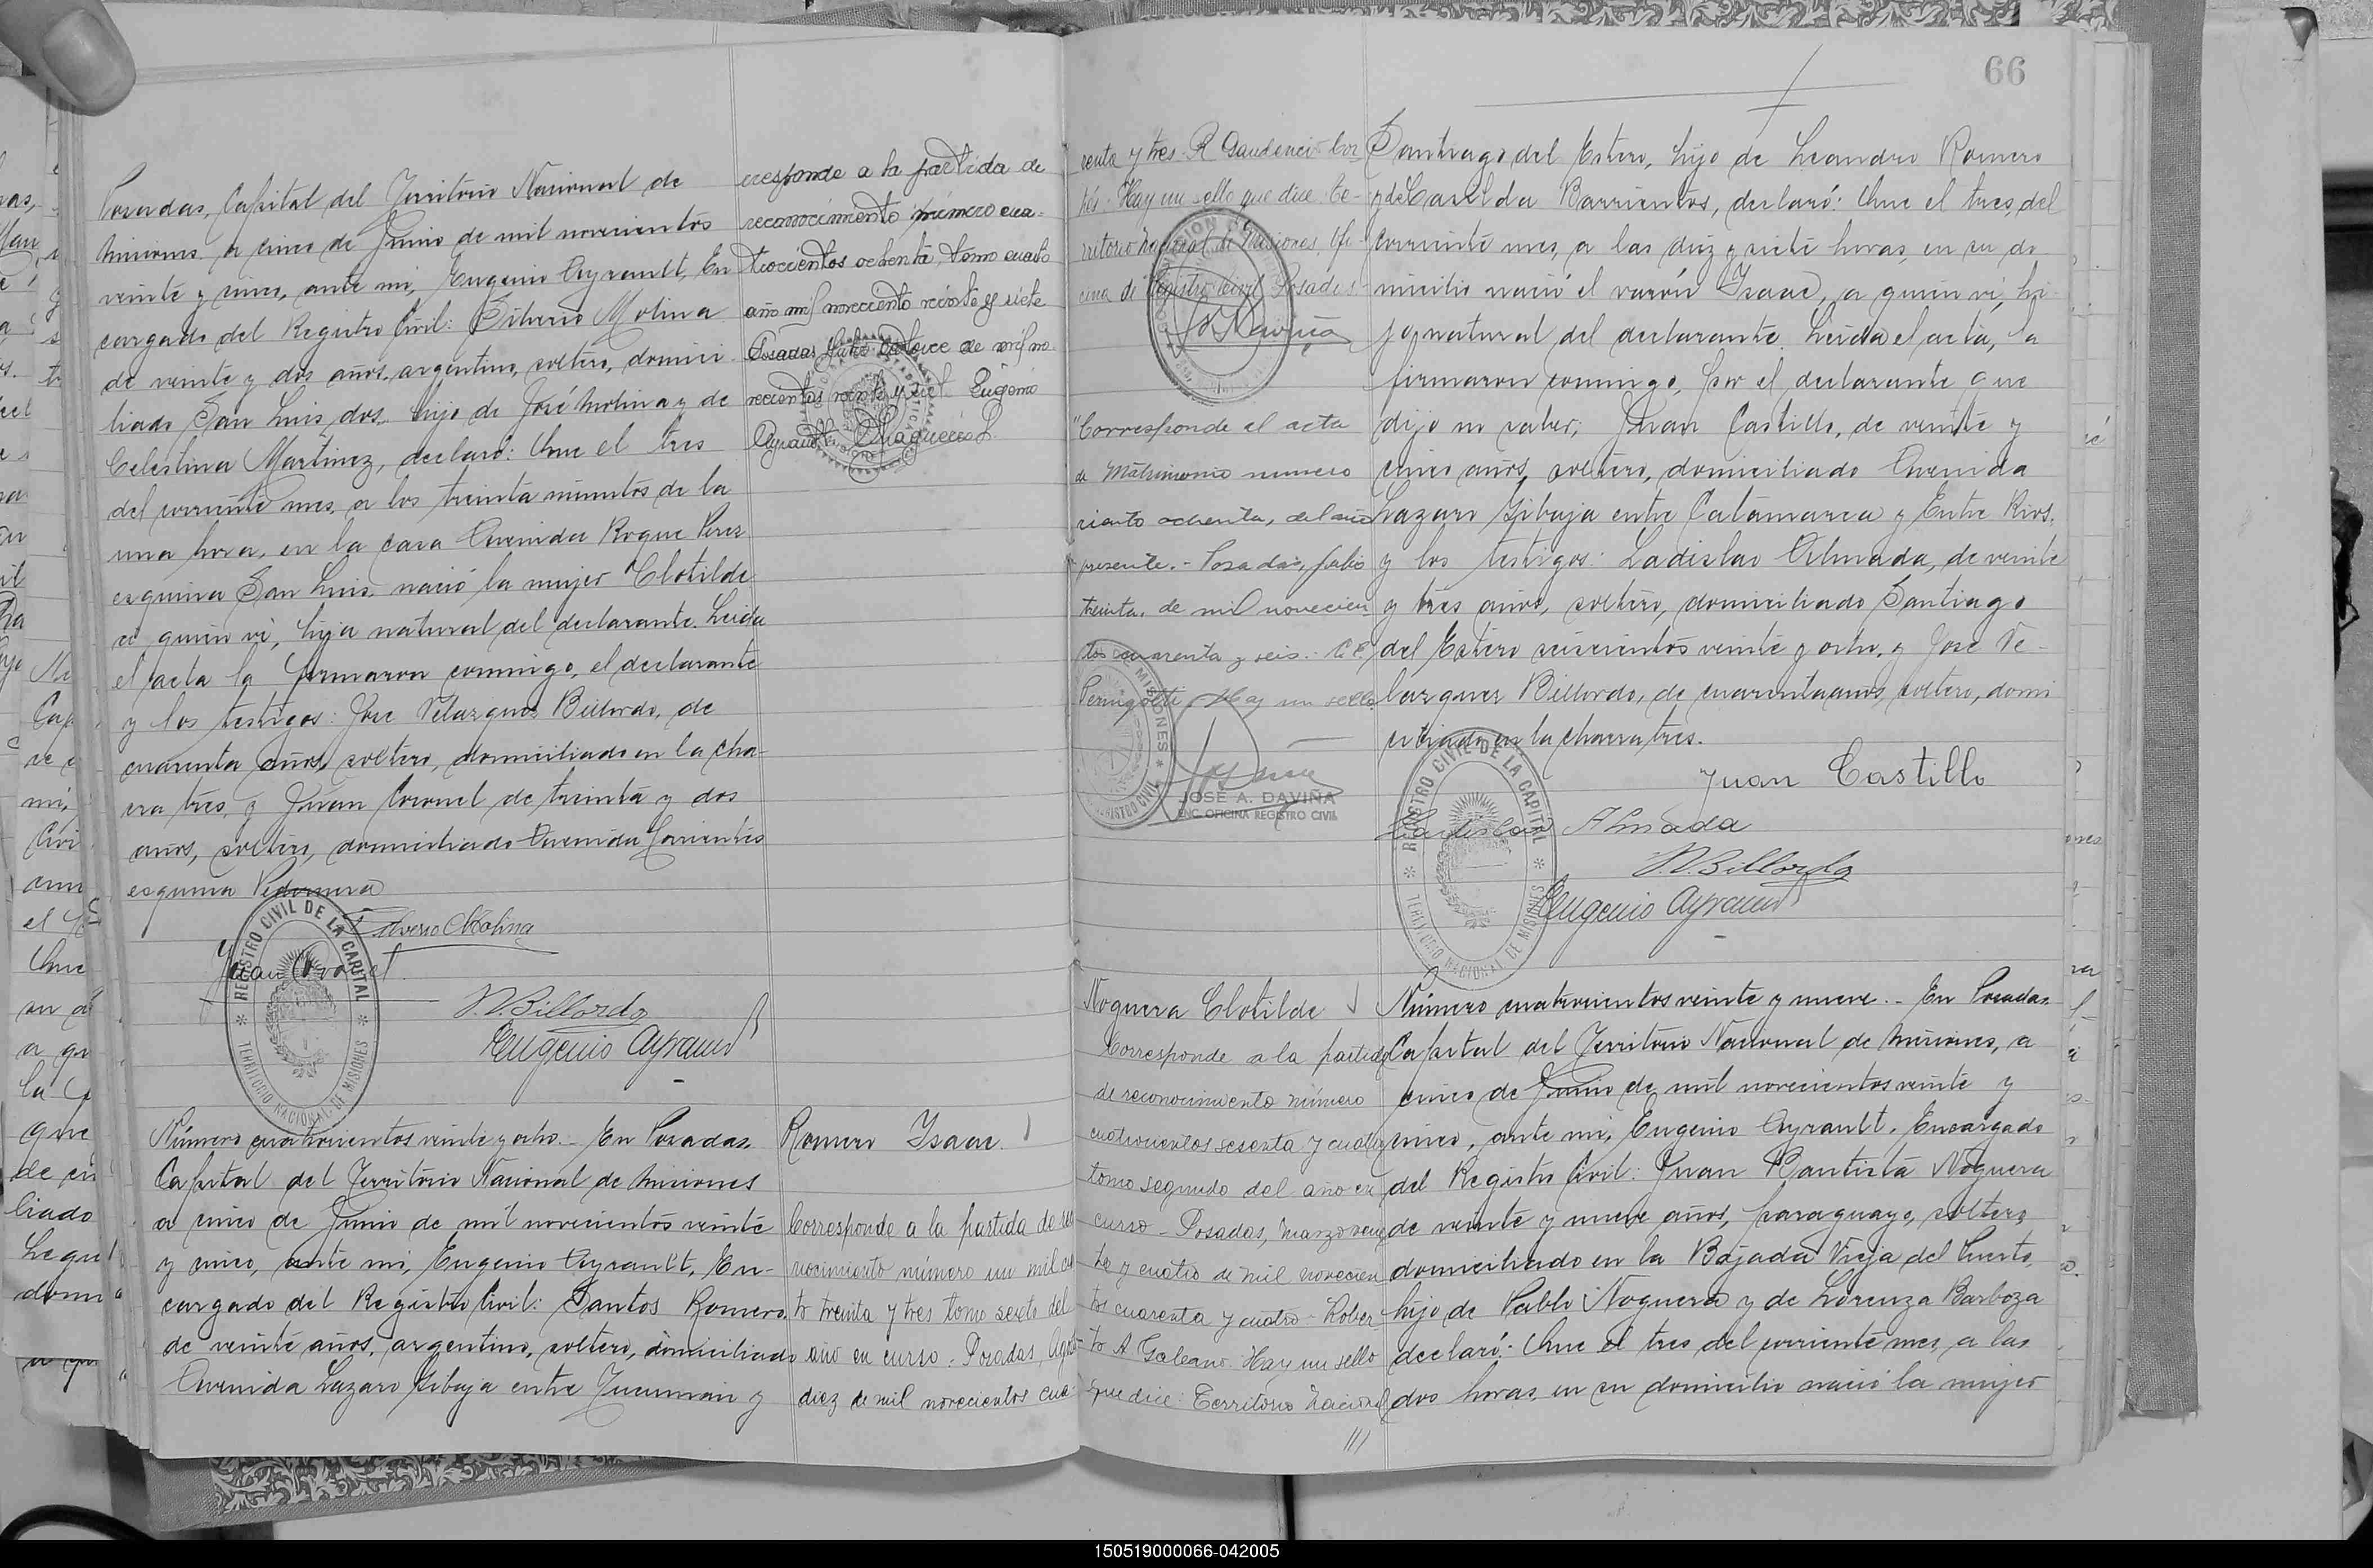 Posadas, Capital del Territorio Nacional de
Misiones a cinco de Junio de mil novecientos
veinte y cinco, ante mi, Eugenio Ayrault, En
cargado del Registro Civil: Silverio Molina
de veinte y dos años, argentino, soltero, domici
liado San Luis, dos. hijo de José Molina y de
Celestina Martinez, declaró: Que el tres
del corriente mes, a los treinta minutos de la
una hora, en la casa Avenida Roque Perez
esquina San Luis, nació la mujer Clotilde
a quien vi, hija natural del declarante. Leida
el acta la firmaron conmigo, el declarante
y los testigos: José Velazquez Billordo, de
cuarenta años, soltero, domiciliado en la cha-
cra tres, y Juan Coronel de treinta y dos
años, soltero, domiciliado Avenida Corrientes
esquina Pedernera
Silverio Molina
Juan Coronel
V. Billordo
Eugenio Ayrault
REGISTRO CIVIL DE LA CAPITAL
TERRITORIO NACIONAL DE MISIONES
rresponde a la partida de
reconocimiento número cua-
trocientos ochenta, tomo cuarto
año mil novecientos veinte y siete
Posadas, Julio catorce de mil no-
vecientos veinte y siete. Eugenio
Ayrault.
Número cuatrocientos veinte y ocho.- En Posadas
Capital del Territorio Nacional de Misiones
a cinco de Junio de mil novecientos veinte
y cinco, ante mi, Eugenio Ayrault, En-
cargado del Registro Civil: Santos Romero
de veinte años, argentino, soltero, domiciliado
Avenida Lazaro Gibaja entre Tucumán y
Romero Isaac.
Corresponde a la partida de reco
nocimiento número un mil cien
to treinta y tres tomo sexto del
año en curso. Posadas, Agosto
diez de mil novecientos cua
66
renta y tres. R Gaudencio Cor
tés. Hay un sello que dice: Te-
rritorio Nacional de Misiones. Ofi-
cina de Registro Civil Posadas-
"Corresponde al acta
de Matrimonio número
ciento ochenta, del año
presente.- Posadas, julio
treinta, de mil novecien
tos cuarenta y seis.
Hay un sello
JOSÉ A. DAVIÑA
ENC. OFICINA REGISTRO CIVIL
Santiago del Estero, hijo de Leandro Romero
y de Casilda Barrientos, declaró: Que el tres, del
corriente mes, a las diez y siete horas, en su do
micilio nació el varón Isaac, a quien vi, hi-
jo natural del declarante. Leida el acta, la
firmaron conmigo, por el declarante que
dijo no saber; Juan Castillo, de veinte y
cinco años, soltero, domiciliado Avenida
Lazaro Gibaja entre Catamarca y Entre Rios,
y los testigos: Ladislao Almada, de veinte
y tres años, soltero, domiciliado Santiago
del Estero seiscientos veinte y ocho, y José Ve-
lazquez Billordo, de cuarenta años, soltero, domi
ciliado en la chacra tres.
Juan Castillo
Ladislao Almada
V. Billordo
Eugenio Ayrault
REGISTRO CIVIL DE LA CAPITAL
TERRITORIO NACIONAL DE MISIONES
Noguera Clotilde
Corresponde a la partida
de reconocimiento número
cuatrocientos sesenta y cuatro
tomo segundo del año en
curso - Posadas, marzo vein
te y cuatro de mil novecien
tos cuarenta y cuatro - Rober
to A Galeano. Hay un sello
que dice: Territorio Nacional
Número cuatrocientos veinte y nueve.- En Posadas
Capital del Territorio Nacional de Misiones, a
cinco de Junio de mil novecientos veinte y
cinco, ante mi, Eugenio Ayrault, Encargado
del Registro Civil: Juan Bautista Noguera
de veinte y nueve años, paraguayo, soltero
domiciliado en la Bajada Vieja del Puerto,
hijo de Pablo Noguera y de Lorenza Barboza
declaró: Que el tres del corriente mes, a las
dos horas, en su domicilio nació la mujer
150519000066-042005